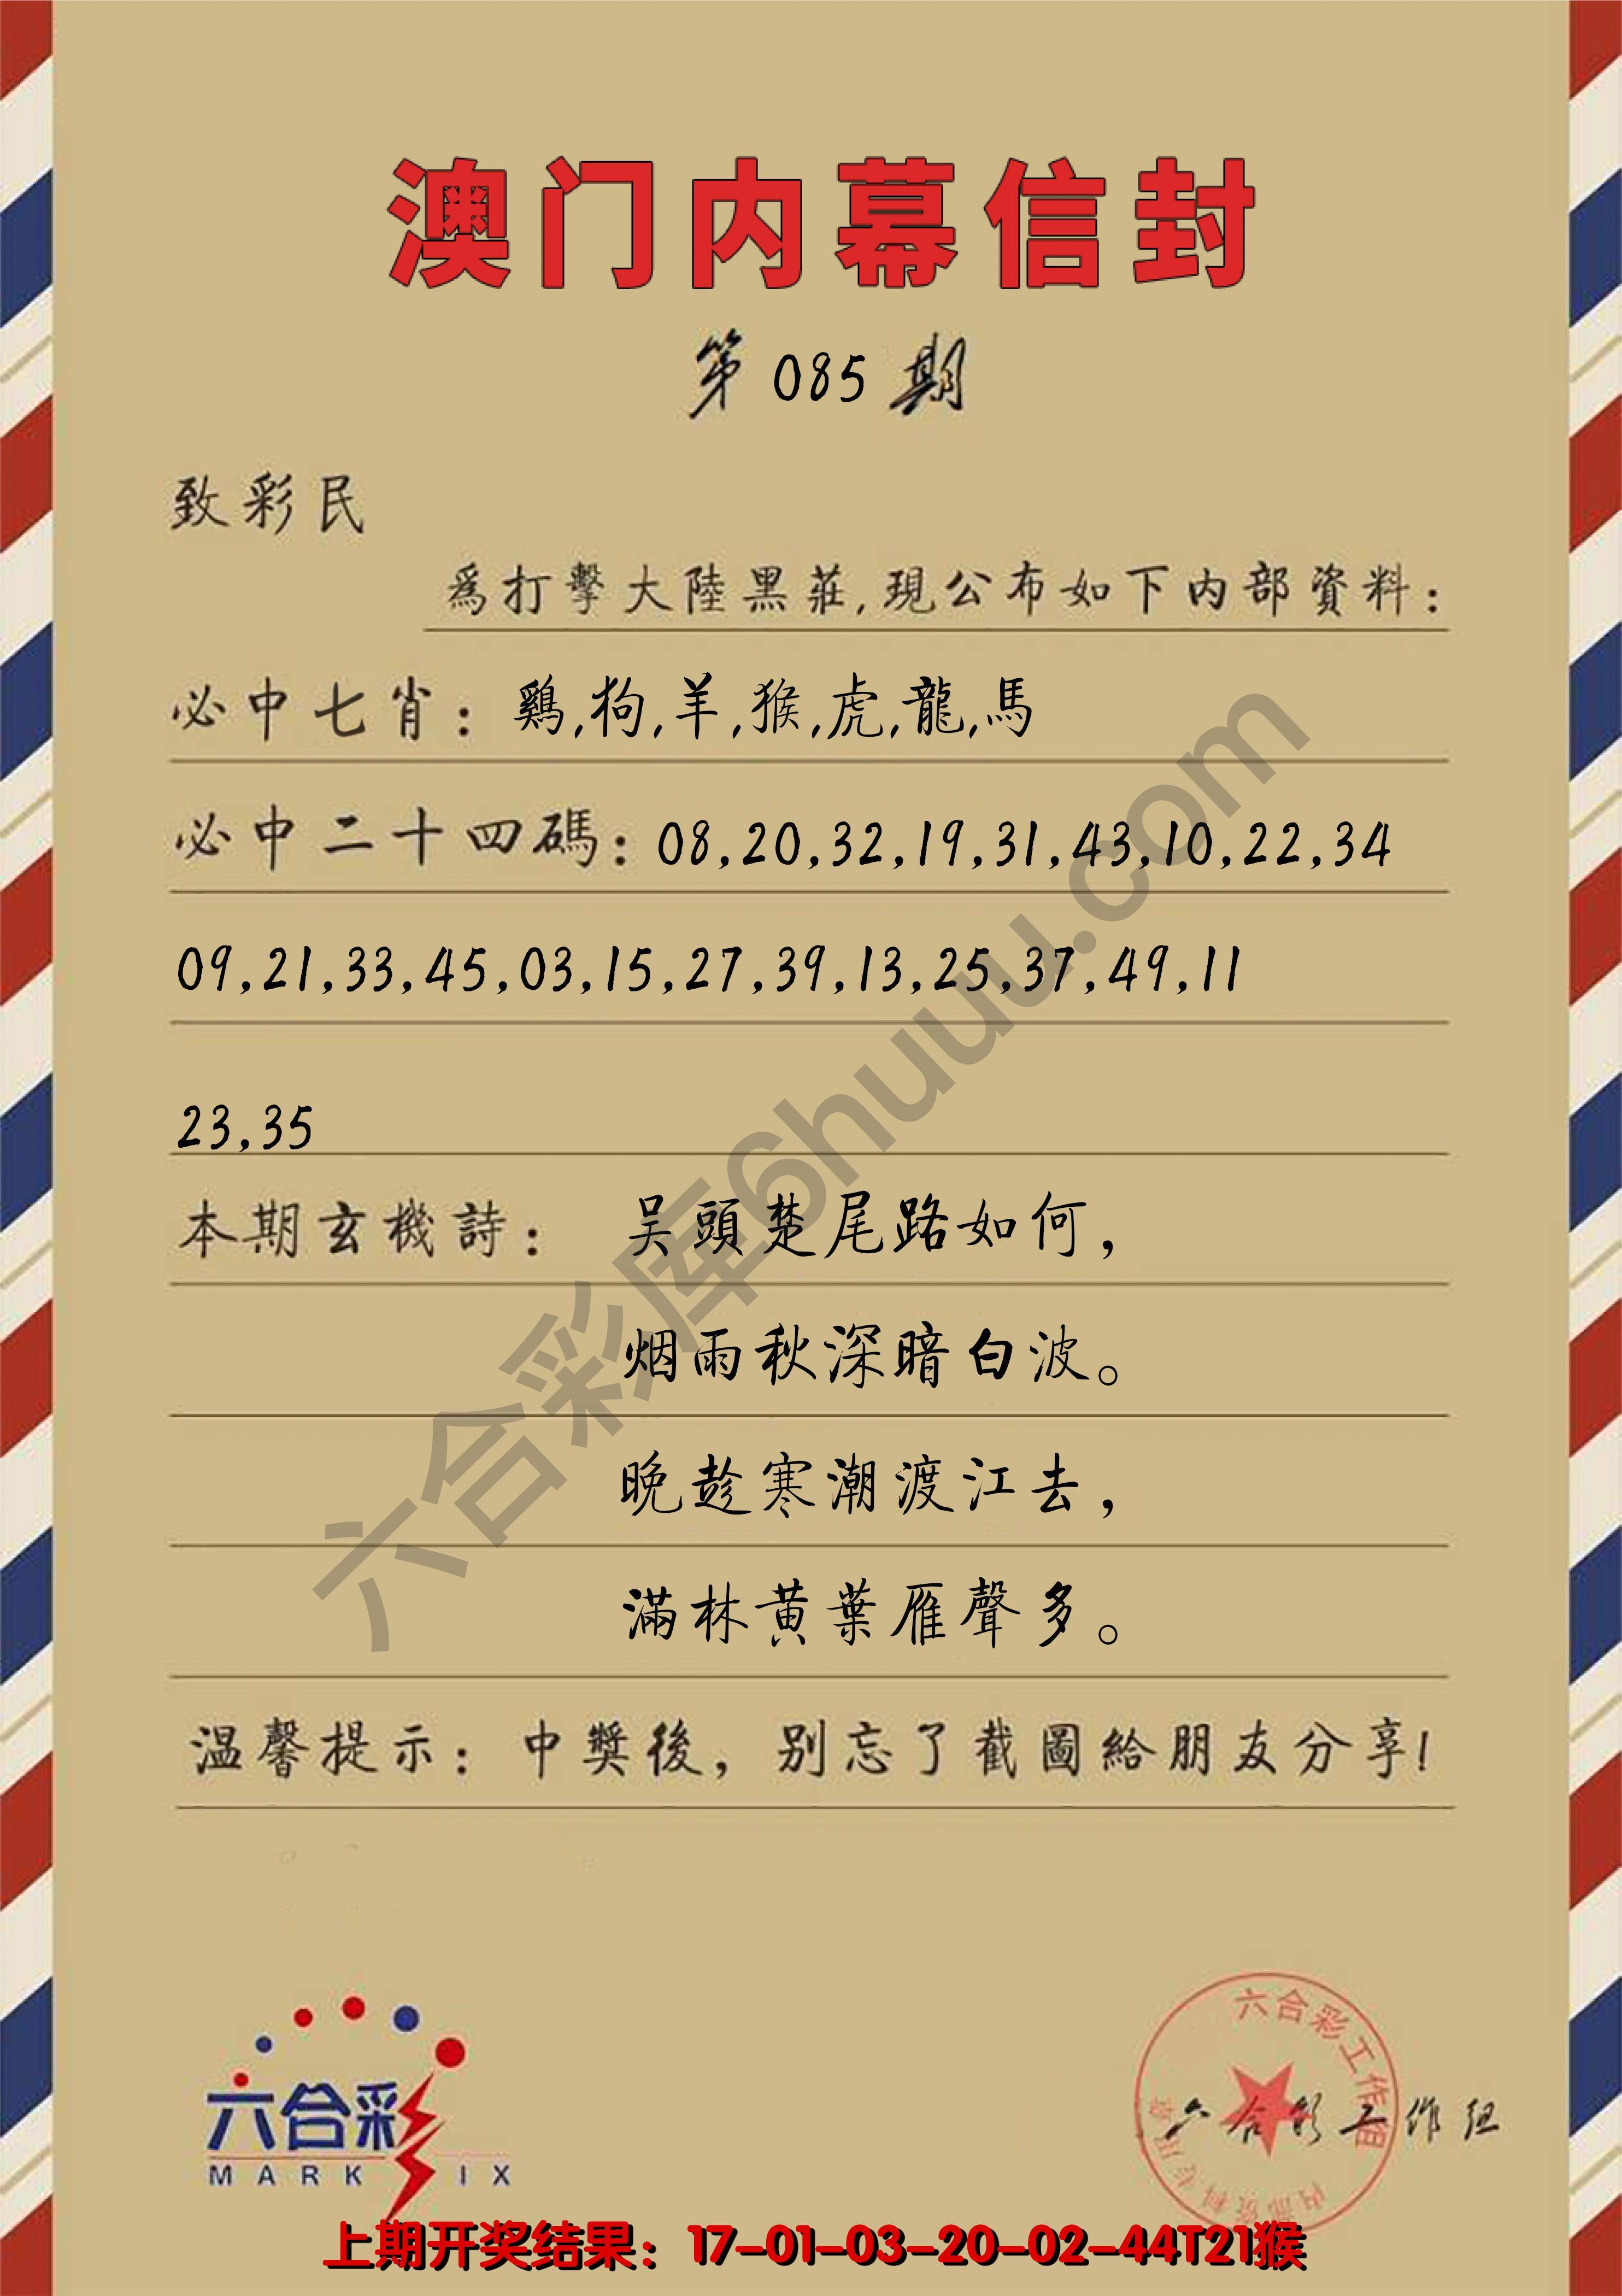 澳门内幕信封
第085期
致彩民
為打擊大陸黑莊,現公布如下内部資料:
必中七肖:鷄,狗,羊,猴,虎,龍,馬
必中二十四碼:08,20,32,19,31,43,10,22,34
09,21,33,45,03,15,27,39,13,25,37,49,11
23,35
本期玄機詩: 吴頭楚尾路如何,
烟雨秋深暗白波。
晚趁寒潮渡江去,
滿林黄葉雁聲多。
温馨提示:中獎後,别忘了截圖給朋友分享!
六合彩库6huuu.com
六合彩
MARK IX
六合彩工作组
内部资料专用章
六合彩工作组
上期开奖结果:17-01-03-20-02-44T21猴